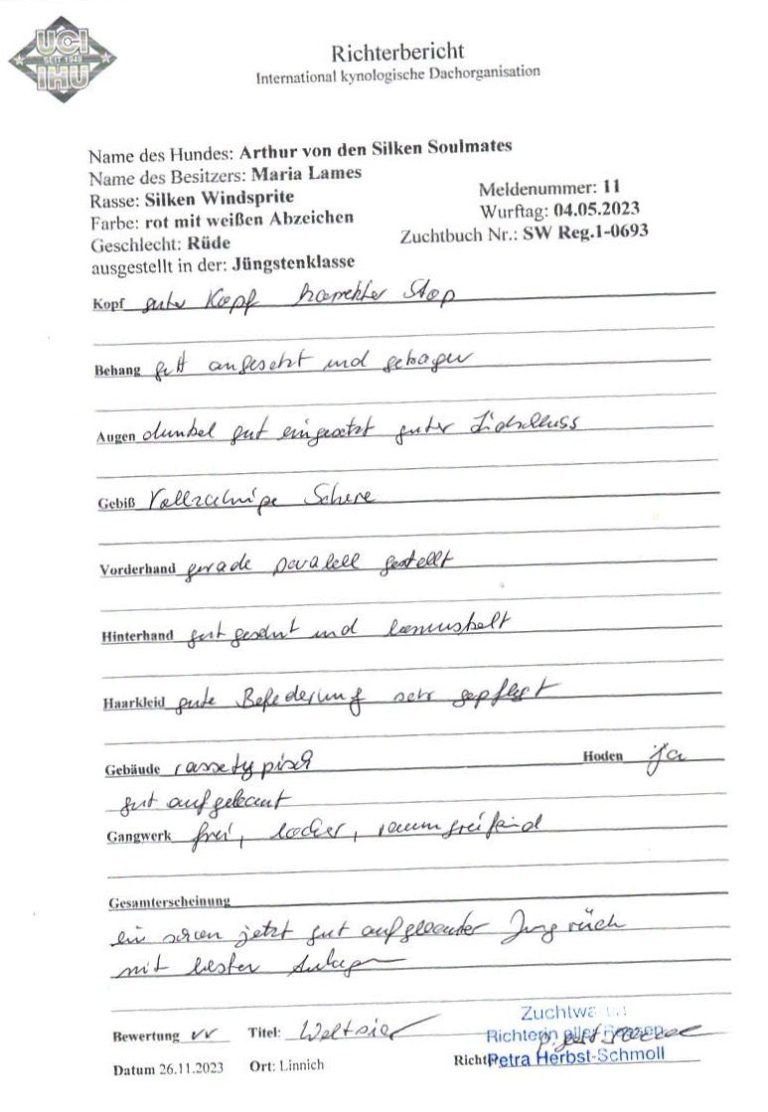 UCI
SEIT 1949
IHU
Richterbericht
International kynologische Dachorganisation
Name des Hundes: Arthur von den Silken Soulmates
Name des Besitzers: Maria Lames
Rasse: Silken Windsprite Meldenummer: 11
Farbe: rot mit weißen Abzeichen Wurftag: 04.05.2023
Geschlecht: Rüde Zuchtbuch Nr.: SW Reg.1-0693
ausgestellt in der: Jüngstenklasse
Kopf guter Kopf korrekter Stop
Behang gut angesetzt und getragen
Augen dunkel gut eingesetzt guter Lidschluss
Gebiß Vollzahnige Schere
Vorderhand gerade parallel gestellt
Hinterhand gut und bemuskelt
Haarkleid gute Befederung sehr gepflegt
Gebäude rassetypisch Hoden ja
gut aufgebaut
Gangwerk frei, locker, raumgreifend
Gesamterscheinung
ein schon jetzt gut aufgebauter Jungrüde
mit bester Anlagen
Bewertung vv Titel: Weltsieger
Zuchtwa
Richterin aller Rassen
Datum 26.11.2023 Ort: Linnich Petra Herbst-Schmoll